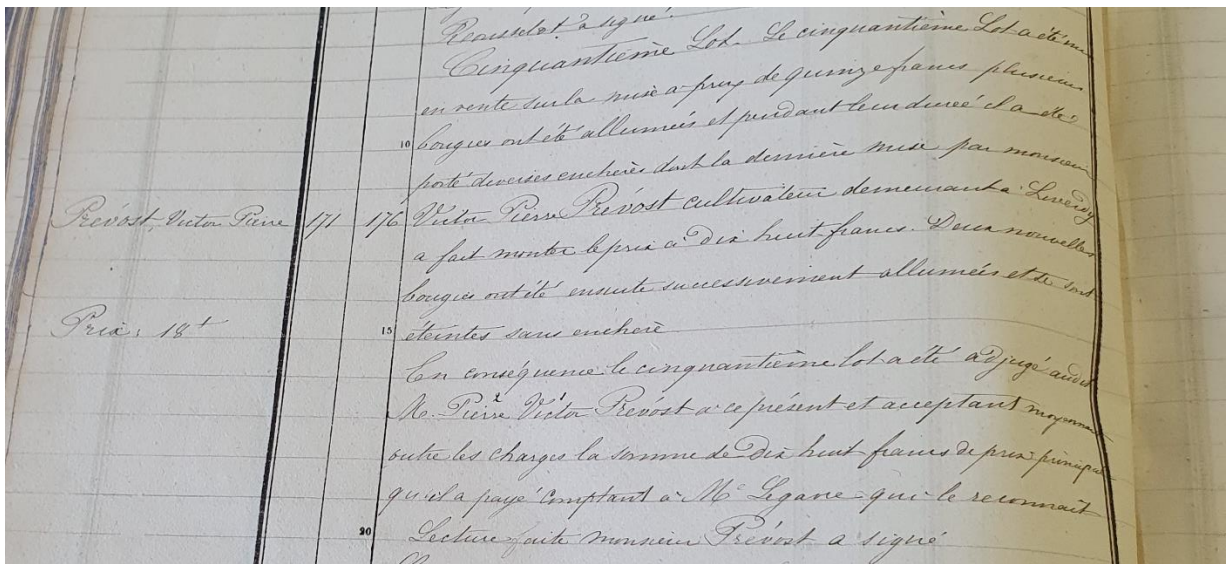 Rousselot a signé.
Cinquantième Lot. Le cinquantième Lot a été mis
en vente sur la mise a prix de quinze francs plusieurs
10 bougies ont été allumées et pendant leur durée il a été
porté diverses enchères dont la dernière mise par monsieur
Prévost, Victor Pierre 171 176 Victor Pierre Prévost cultivateur demeurant a Liverdy
a fait monter le prix a Dix huit francs. Deux nouvelles
bougies ont été ensuite successivement allumées et se sont
Prix: 18f 15 éteintes sans enchère
En conséquence le cinquantième lot a été adjugé audit
M. Pierre Victor Prévost a ce présent et acceptant moyennant
outre les charges la somme de Dix huit francs de prix principal
qu'il a payé comptant a Me qui le reconnait
20 Lecture faite monsieur Prévost a signé